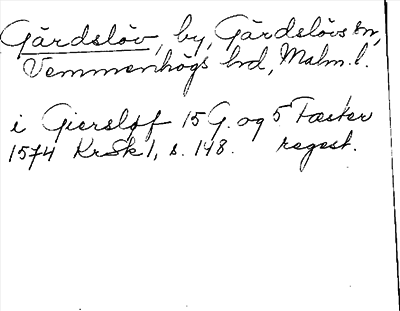 Gärdslöv, by, Gärdslövs sn,
Vemmenhögs hd, Malm. l.
i Giersløf 15 G. og 5 Fæster
1574 KrSk 1, s. 148. regest.